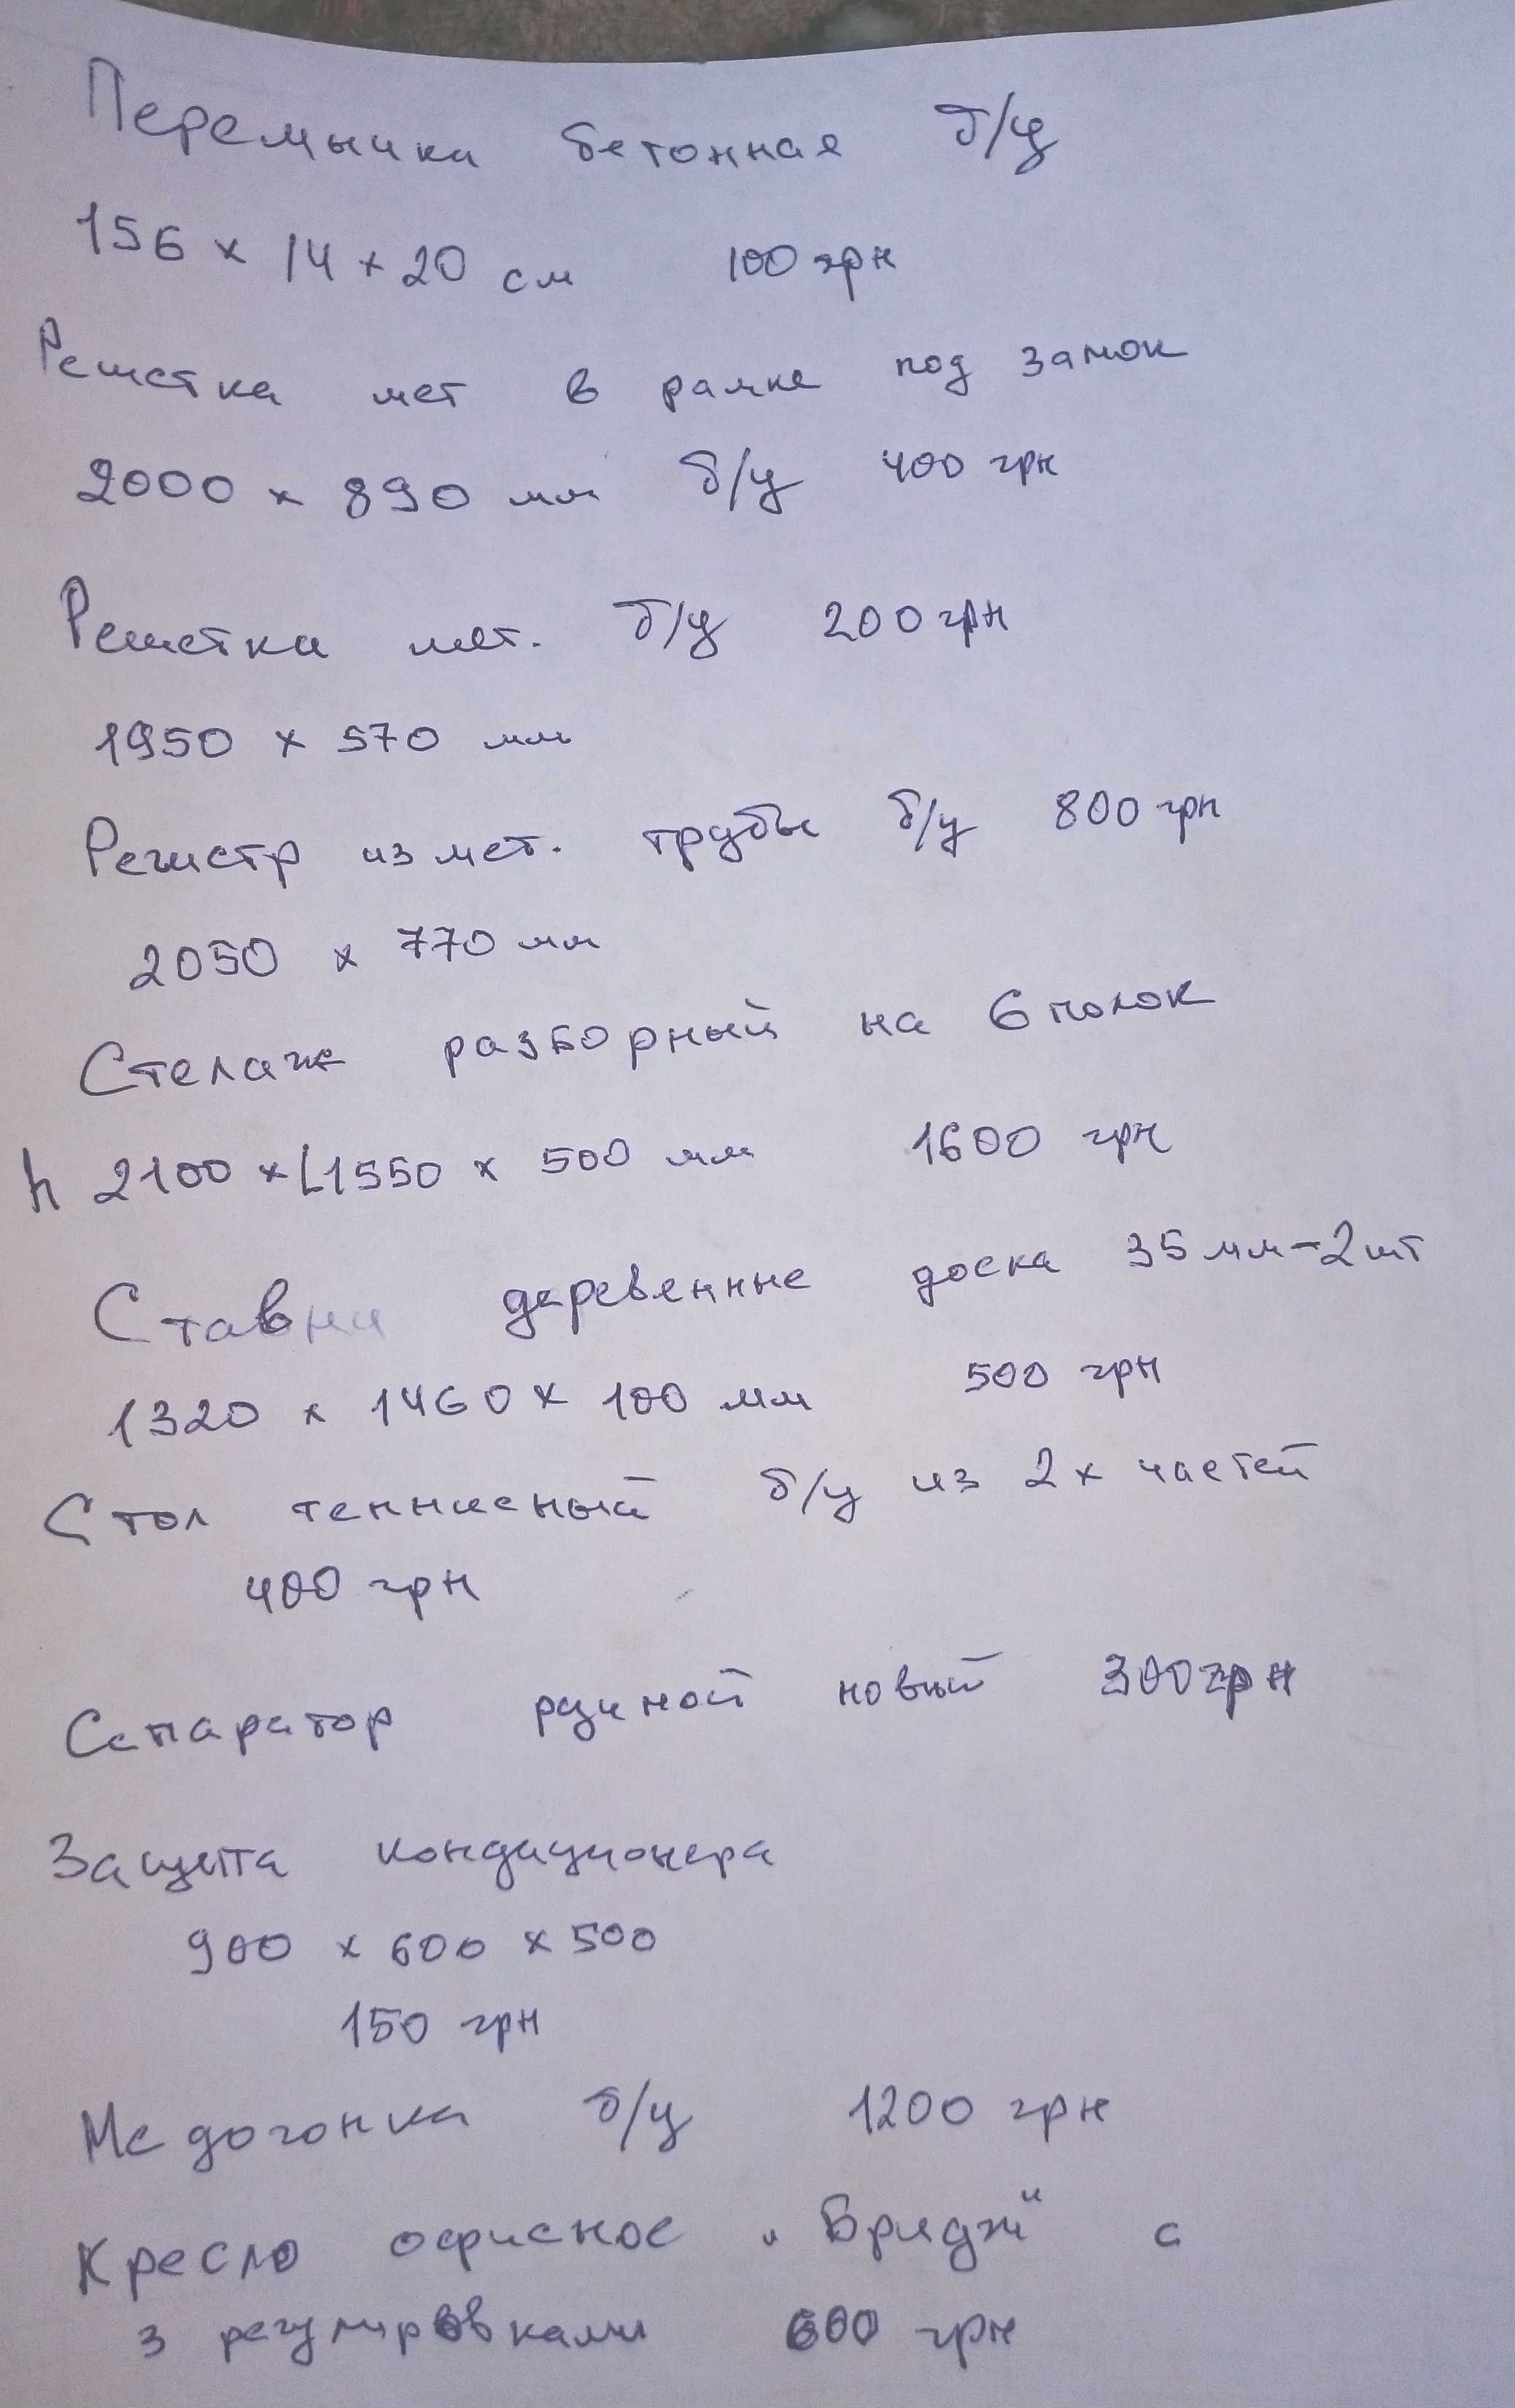 Перемычка бетонная б/у
156 x 14 x 20 см 100 грн
Решетка мет в рамке под замок
2000 x 890 мм б/у 400 грн
Решетка мет. б/у 200 грн
1950 x 570 мм
Регистр из мет. трубы б/у 800 грн
2050 x 770 мм
Стелаж разборный на 6 полок
h 2100 x L1550 x 500 мм 1600 грн
Ставни деревенные доска 35 мм-2шт
1320 x 1460 x 100 мм 500 грн
Стол теннисный б/у из 2х частей
400 грн
Сепаратор ручной новый 300 грн
Защита кондиционера
900 x 600 x 500
150 грн
Медогонка б/у 1200 грн
Кресло офисное „Бридж" с
3 регулировками 600 грн